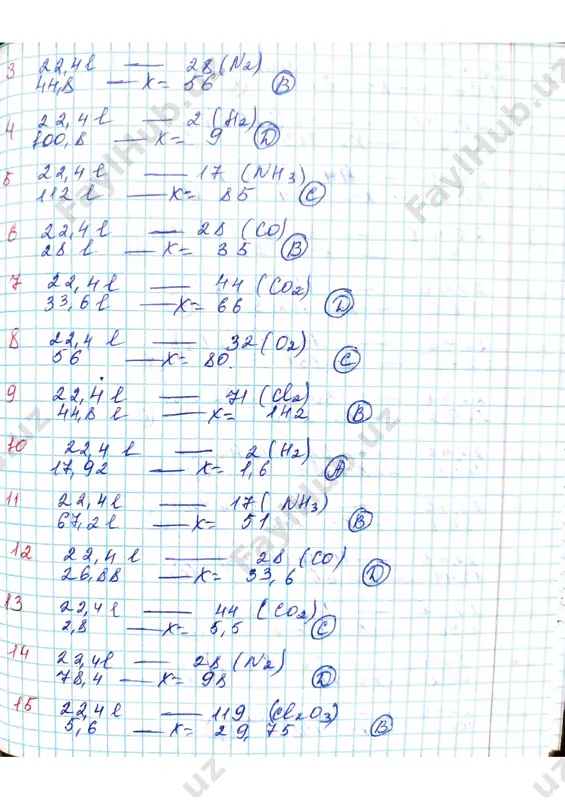 3 22,4 l — 28 (N2)
44,8 — X = 56 (B)
4 22,4 l — 2 (H2)
100,8 — X = 9 (D)
5 22,4 l — 17 (NH3)
112 l — X = 85 (C)
6 22,4 l — 28 (CO)
28 l — X = 35 (B)
7 22,4 l — 44 (CO2)
33,6 l — X = 66 (D)
8 22,4 l — 32 (O2)
56 — X = 80. (C)
9 22,4 l — 71 (Cl2)
44,8 l — X = 142 (B)
10 22,4 l — 2 (H2)
17,92 — X = 1,6 (A)
11 22,4 l — 17 (NH3)
67,2 l — X = 51 (B)
12 22,4 l — 28 (CO)
26,88 — X = 33,6 (D)
13 22,4 l — 44 (CO2)
2,8 — X = 5,5 (C)
14 22,4 l — 28 (N2)
78,4 — X = 98 (D)
15 22,4 l — 119 (Cl2O3)
5,6 — X = 29,75 (B)
FaylHub.uz
FaylHub.uz
FaylHub.uz
uz
uz
uz